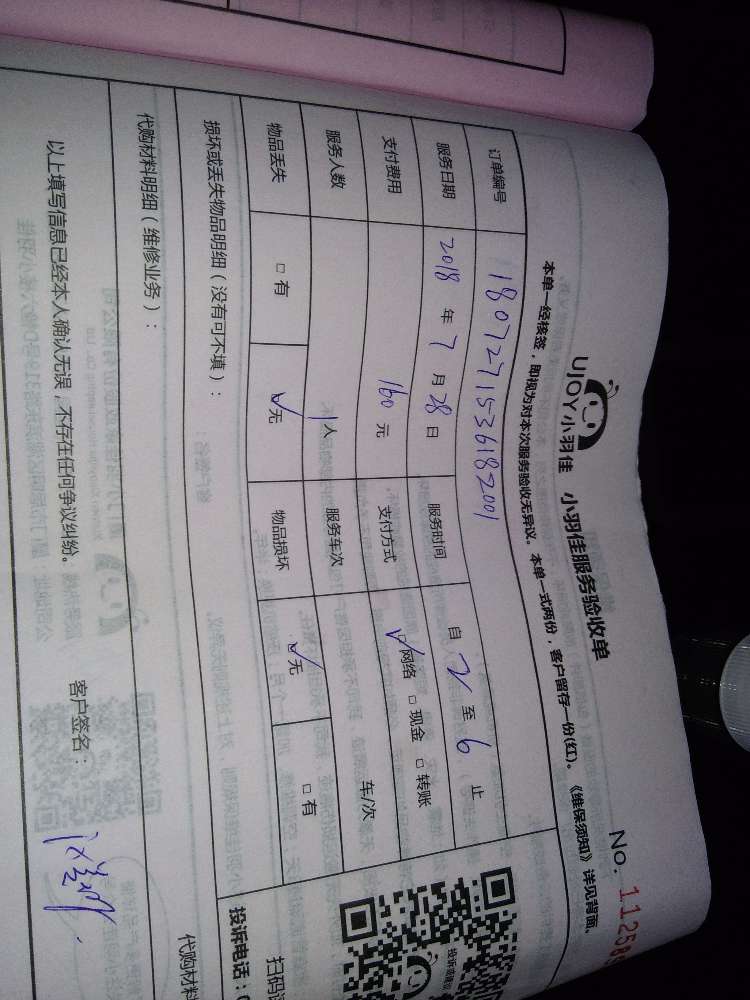 UJOY小羽佳 小羽佳服务验收单
No. 11258
本单一经核签，即视为对本次服务验收无异议。本单一式两份，客户留存一份(红)。《维保须知》详见背面。
订单编号 1807271536182001
服务日期 2018 年 7 月 28 日 服务时间 自 2 至 6 止
支付费用 160 元 支付方式 ☑网络 □现金 □转账
服务人数 1人 服务车次 车/次
物品丢失 □有 ☑无 物品损坏 ☑无 □有
损坏或丢失物品明细（没有可不填）：
代购材料明细（维修业务）： 代购材料
以上填写信息已经本人确认无误，不存在任何争议纠纷。 客户签名：
投诉或建议
扫码
投诉电话：